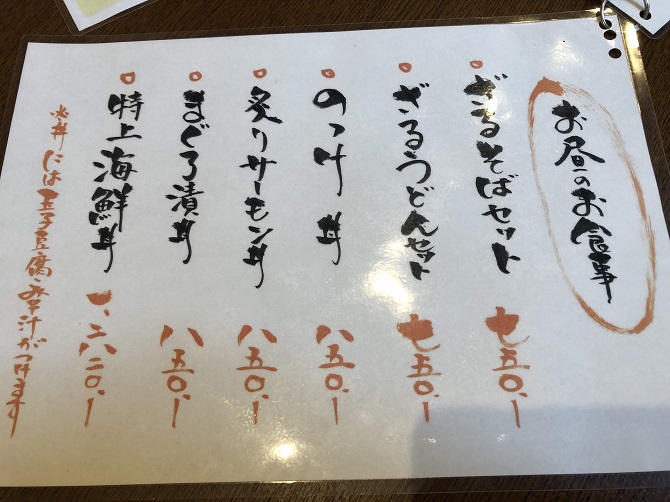 お昼のお食事
ざるそばセット 七五〇、ー
ざるうどんセット 七五〇、ー
のっけ丼 八五〇、ー
炙りサーモン丼 八五〇、ー
まぐろ漬丼 八五〇、ー
特上海鮮丼 一、六二〇、ー
※丼には玉子豆腐・みそ汁がつけます